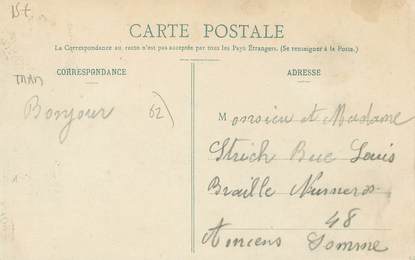 15€
CARTE POSTALE
La Correspondance au recto n'est pas acceptée par tous les Pays Étrangers. (Se renseigner à la Poste.)
CORRESPONDANCE
TRAM
Bonjour
62)
ADRESSE
Monsieur et Madame
Strich Rue Louis
Braille Numeros
48
Amiens Somme